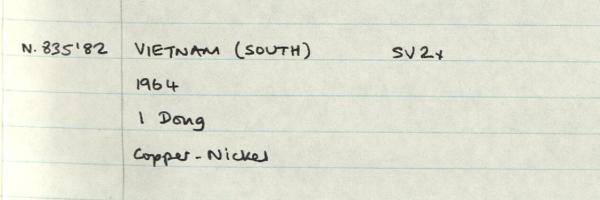 N. 835'82 VIETNAM (SOUTH) SV2x
1964
1 Dong
Copper-Nickel